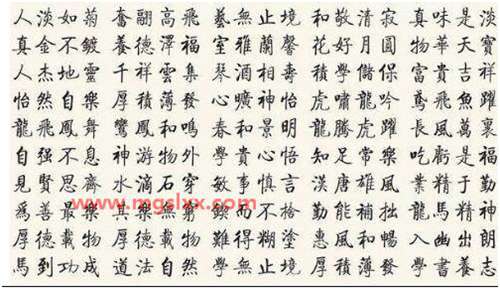 人淡如菊 奮翮高飛 藝無止境 和敬清寂 真味是淡
真金不鍍 養德澤福 室雅蘭馨 花好月圓 物華天寶
人杰地靈 千祥雲集 琴酒相壽 學儲保 富貴吉祥
怡然自樂 厚積薄發 心曠神怡 虎嘯龍吟 鳶飛魚躍
龍飛鳳舞 鸞鳳和鳴 春和景明 龍騰虎躍 長風萬裏
自强不息 神游物外 學貴心悟 知足常樂 吃虧是福
見賢思齊 水滴石穿 敏事慎言 漢唐雄風 業精于勤
爲善最樂 其樂無窮 而不 勤能補拙 龍馬精神
厚德載物 難得糊塗 惠風和暢 入幽出朗
馬到功成 道法自然 學無止境 厚積薄發 學書養志
www.mgslxx.com